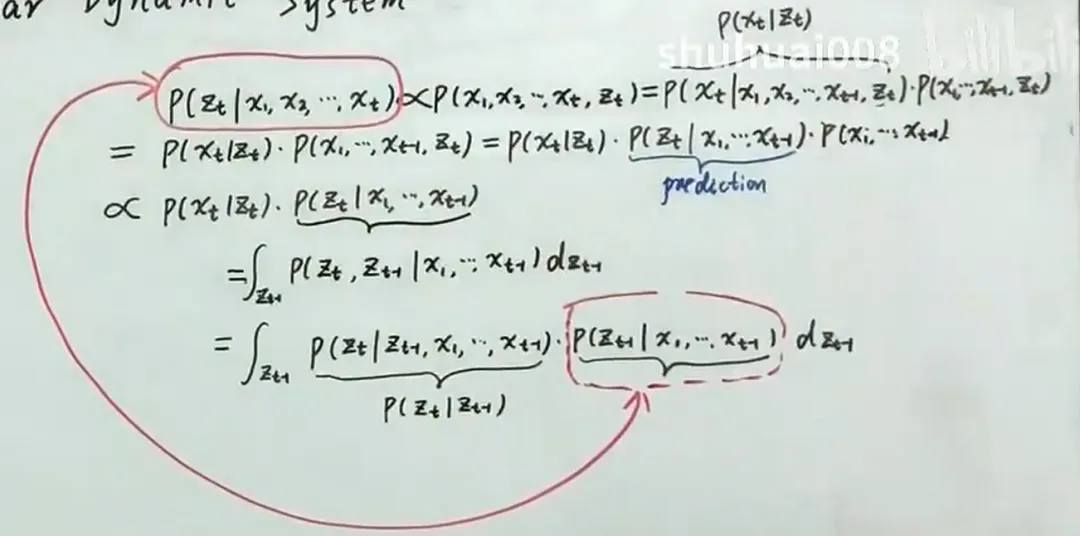 ar Dynamic System
P(x_t|z_t)
shuhuai008 bilibili
P(z_t | x_1, x_2, ..., x_t) ∝ P(x_1, x_2, ..., x_t, z_t) = P(x_t | x_1, x_2, ..., x_{t-1}, z_t) · P(x_1, ..., x_{t-1}, z_t)
= P(x_t|z_t) · P(x_1, ..., x_{t-1}, z_t) = P(x_t|z_t) · P(z_t | x_1, ..., x_{t-1}) · P(x_1, ..., x_{t-1})
prediction
∝ P(x_t|z_t) · P(z_t | x_1, ..., x_{t-1})
= ∫_{z_{t-1}} P(z_t, z_{t-1} | x_1, ..., x_{t-1}) dz_{t-1}
= ∫_{z_{t-1}} P(z_t | z_{t-1}, x_1, ..., x_{t-1}) · P(z_{t-1} | x_1, ..., x_{t-1}) dz_{t-1}
P(z_t | z_{t-1})